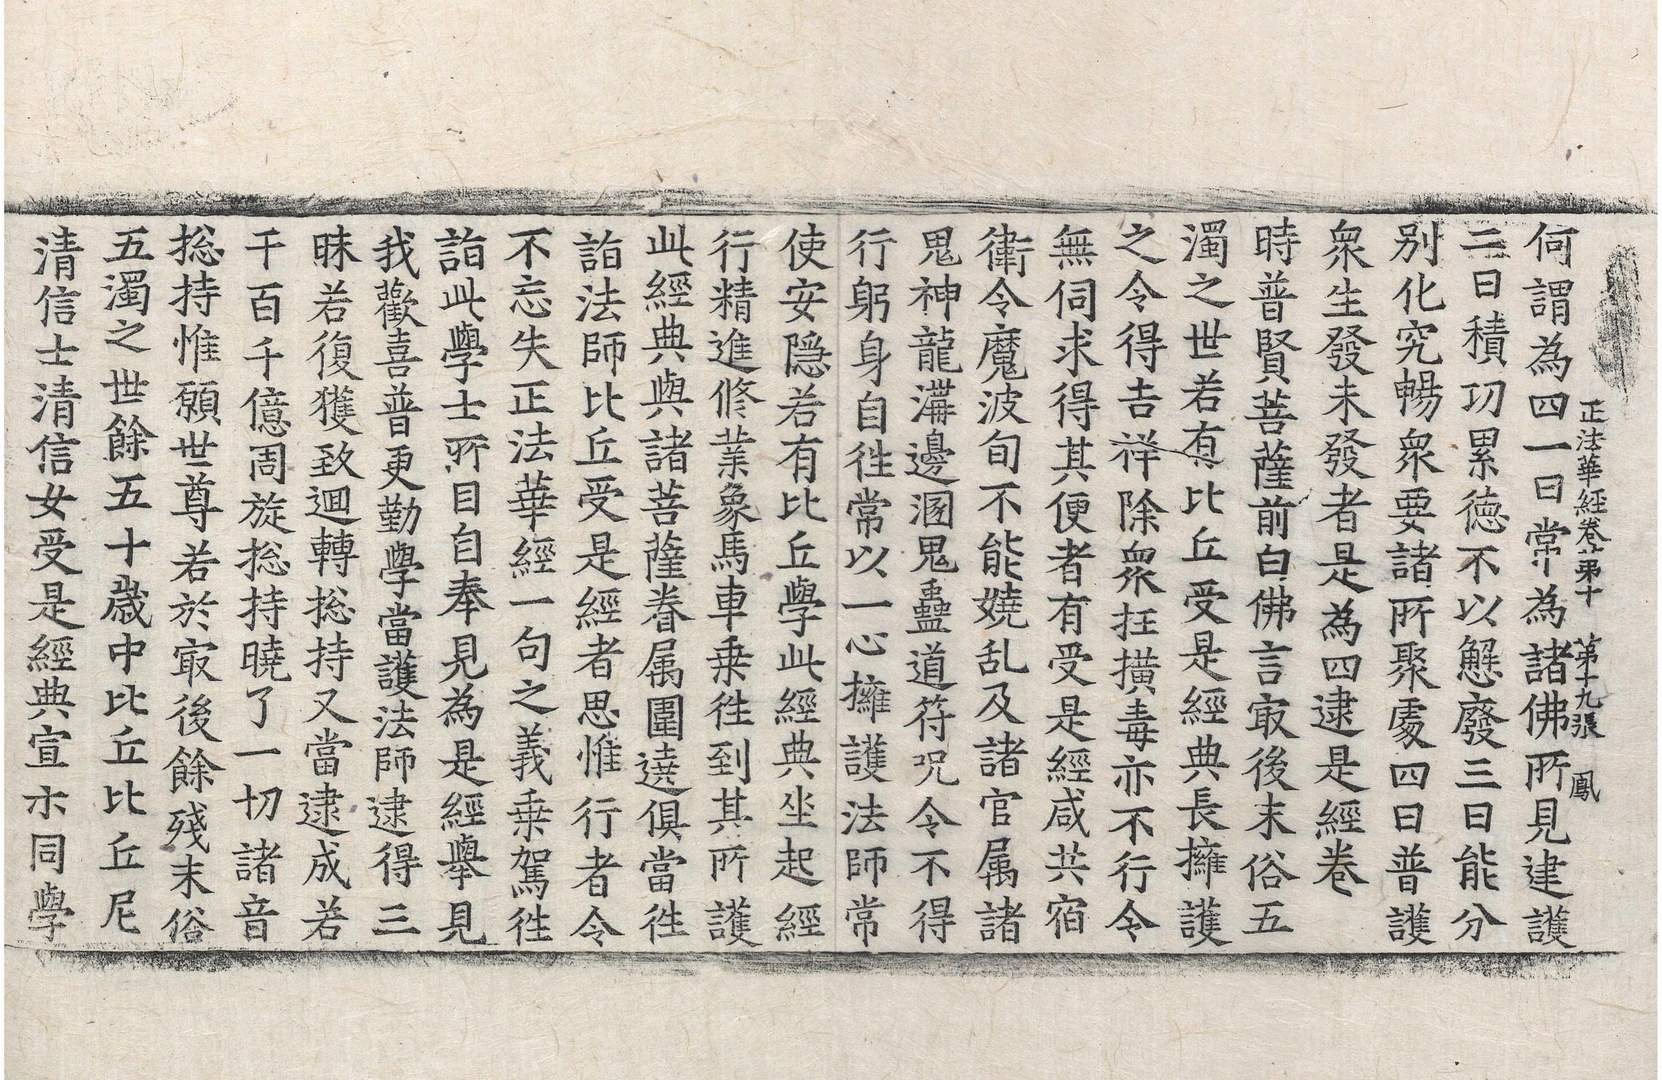 正法華經卷第十 第十九張 鳳
何謂為四一曰常為諸佛所見建護
二曰積功累德不以懈廢三曰能分
別化究暢衆要諸所聚處四曰普護
衆生發未發者是為四逮是經卷
時普賢菩薩前白佛言㝡後末俗五
濁之世若有比丘受是經典長擁護
之令得吉祥除衆抂撗毒亦不行令
無伺求得其便者有受是經咸共宿
衛令魔波旬不能嬈乱及諸官属諸
鬼神龍溝邊溷鬼蠱道符呪令不得
行躬身自徃常以一心擁護法師常
使安隱若有比丘學此經典坐起經
行精進修業象馬車乗徃到其所護
此經典與諸菩薩眷属圍遶俱當徃
詣法師比丘受是經者思惟行者令
不忘失正法華經一句之義乗駕徃
詣此學士所目自奉見為是經舉見
我歡喜普更勤學當護法師逮得三
昧若復獲致迴轉捴持又當逮成若
千百千億周旋捴持曉了一切諸音
捴持惟願世尊若於㝡後餘殘末俗
五濁之世餘五十歲中比丘比丘尼
清信士清信女受是經典宣示同學